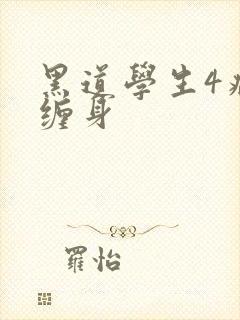 黑道學生4
缠身
羅怡